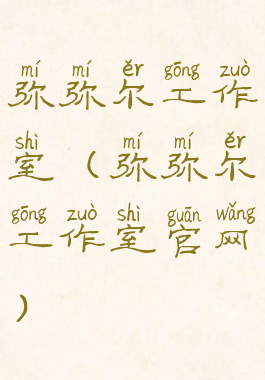 mí mí ěr gōng zuò
弥弥尔工作
shì mí mí ěr
室（弥弥尔
gōng zuò shì guān wǎng
工作室官网
）